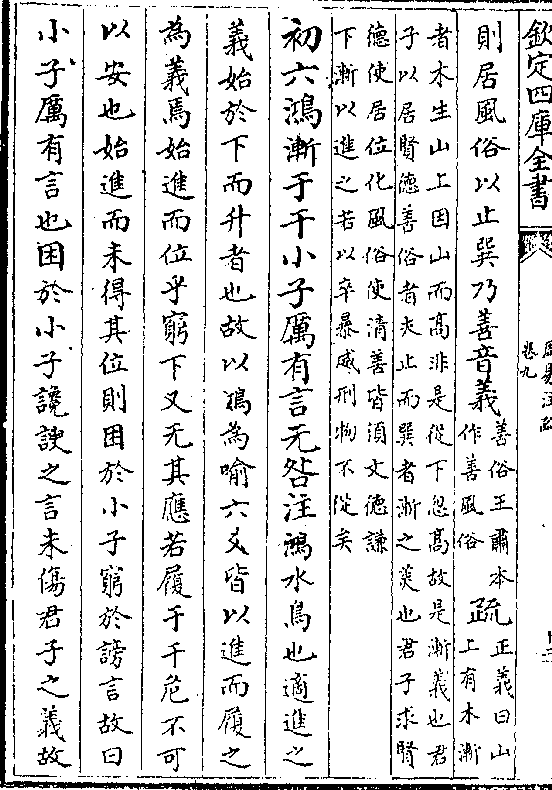 欽定四庫全書
周易注疏
卷九
則居風俗以止巽乃善音義善俗王肅本
作善風俗疏正義曰山
上有木漸
者木生山上因山而高非是從下忽高故是漸義也君
子以居賢德善俗者夫止而巽者漸之美也君子求賢
德使居位化風俗使清善皆須文德謙
下漸以進之若以卒暴威刑物不從矣
初六鴻漸于干小子厲有言无咎注鴻水鳥也適進之
義始於下而升者也故以鴻為喻六爻皆以進而履之
為義焉始進而位乎窮下又无其應若履于干危不可
以安也始進而未得其位則困於小子窮於謗言故曰
小子厲有言也困於小子讒諛之言未傷君子之義故